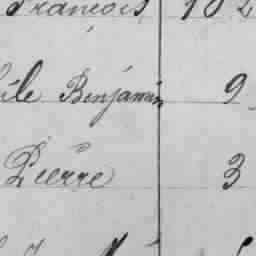 François 102
Benjamin 9
Pierre 3